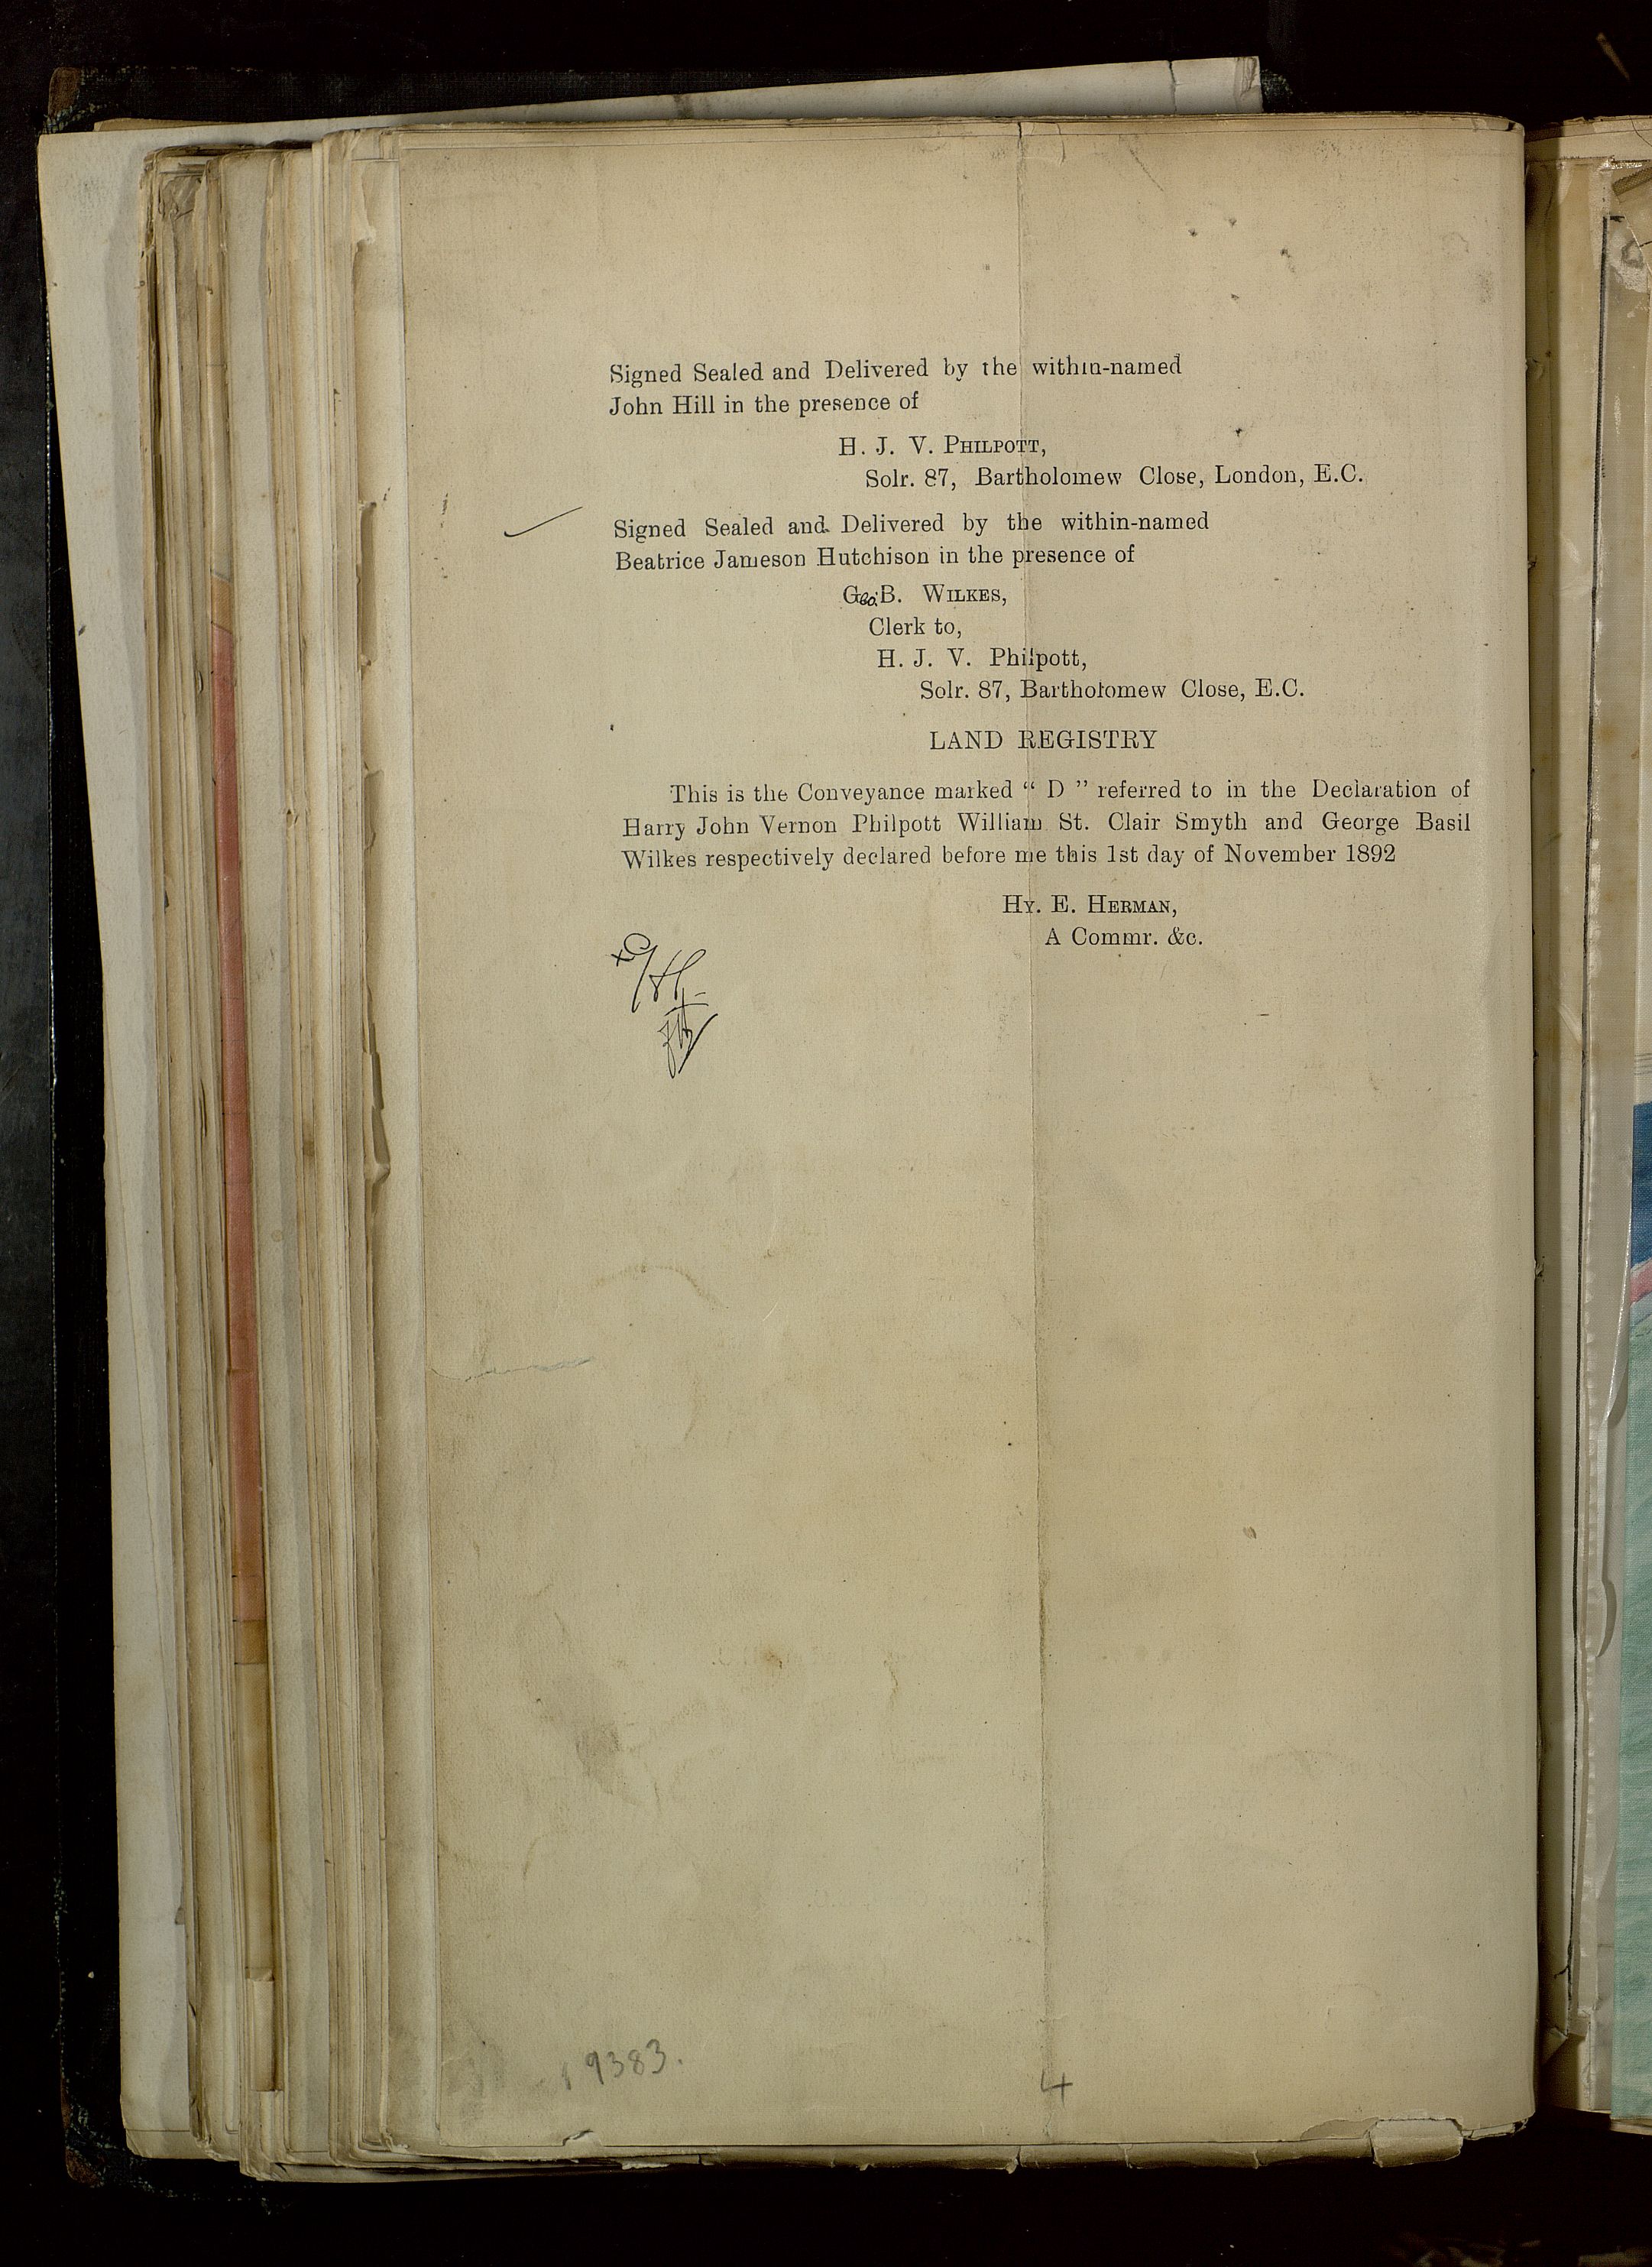 Signed Sealed and Delivered by the within-named
John Hill in the presence of
H. J. V. PHILPOTT,
Solr. 87, Bartholomew Close, London, E.C.
Signed Sealed and Delivered by the within-named
Beatrice Jameson Hutchison in the presence of
Geo. B. WILKES,
Clerk to,
H. J. V. Philpott,
Solr. 87, Bartholomew Close, E.C.
LAND REGISTRY
This is the Conveyance marked “ D ” referred to in the Declaration of
Harry John Vernon Philpott William St. Clair Smyth and George Basil
Wilkes respectively declared before me this 1st day of November 1892
HY. E. HERMAN,
A Commr. &c.
9383.
4